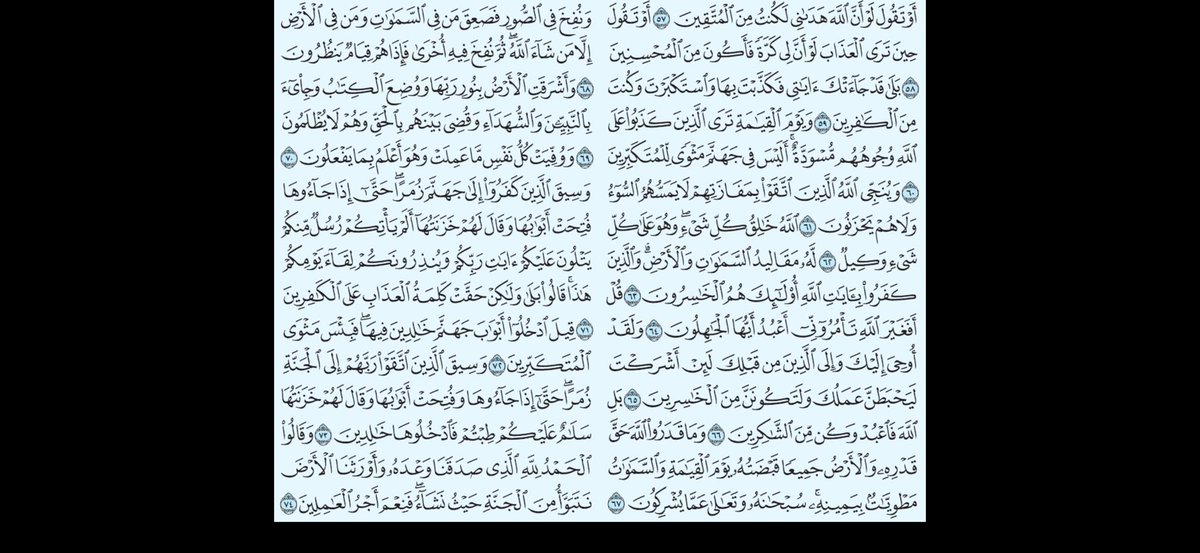 أَوۡ تَقُولَ لَوۡ أَنَّ ٱللَّهَ هَدَىٰنِي لَكُنتُ مِنَ ٱلۡمُتَّقِينَ ٥٧ أَوۡ تَقُولَ
حِينَ تَرَى ٱلۡعَذَابَ لَوۡ أَنَّ لِي كَرَّةٗ فَأَكُونَ مِنَ ٱلۡمُحۡسِنِينَ
٥٨ بَلَىٰ قَدۡ جَآءَتۡكَ ءَايَٰتِي فَكَذَّبۡتَ بِهَا وَٱسۡتَكۡبَرۡتَ وَكُنتَ
مِنَ ٱلۡكَٰفِرِينَ ٥٩ وَيَوۡمَ ٱلۡقِيَٰمَةِ تَرَى ٱلَّذِينَ كَذَبُواْ عَلَى
ٱللَّهِ وُجُوهُهُم مُّسۡوَدَّةٌۚ أَلَيۡسَ فِي جَهَنَّمَ مَثۡوٗى لِّلۡمُتَكَبِّرِينَ
٦٠ وَيُنَجِّي ٱللَّهُ ٱلَّذِينَ ٱتَّقَوۡاْ بِمَفَازَتِهِمۡ لَا يَمَسُّهُمُ ٱلسُّوٓءُ
وَلَا هُمۡ يَحۡزَنُونَ ٦١ ٱللَّهُ خَٰلِقُ كُلِّ شَيۡءٖۖ وَهُوَ عَلَىٰ كُلِّ
شَيۡءٖ وَكِيلٞ ٦٢ لَّهُۥ مَقَالِيدُ ٱلسَّمَٰوَٰتِ وَٱلۡأَرۡضِۗ وَٱلَّذِينَ
كَفَرُواْ بِـَٔايَٰتِ ٱللَّهِ أُوْلَٰٓئِكَ هُمُ ٱلۡخَٰسِرُونَ ٦٣ قُلۡ
أَفَغَيۡرَ ٱللَّهِ تَأۡمُرُوٓنِّيٓ أَعۡبُدُ أَيُّهَا ٱلۡجَٰهِلُونَ ٦٤ وَلَقَدۡ
أُوحِيَ إِلَيۡكَ وَإِلَى ٱلَّذِينَ مِن قَبۡلِكَ لَئِنۡ أَشۡرَكۡتَ
لَيَحۡبَطَنَّ عَمَلُكَ وَلَتَكُونَنَّ مِنَ ٱلۡخَٰسِرِينَ ٦٥ بَلِ
ٱللَّهَ فَٱعۡبُدۡ وَكُن مِّنَ ٱلشَّٰكِرِينَ ٦٦ وَمَا قَدَرُواْ ٱللَّهَ حَقَّ
قَدۡرِهِۦ وَٱلۡأَرۡضُ جَمِيعٗا قَبۡضَتُهُۥ يَوۡمَ ٱلۡقِيَٰمَةِ وَٱلسَّمَٰوَٰتُ
مَطۡوِيَّٰتُۢ بِيَمِينِهِۦۚ سُبۡحَٰنَهُۥ وَتَعَٰلَىٰ عَمَّا يُشۡرِكُونَ ٦٧
وَنُفِخَ فِي ٱلصُّورِ فَصَعِقَ مَن فِي ٱلسَّمَٰوَٰتِ وَمَن فِي ٱلۡأَرۡضِ
إِلَّا مَن شَآءَ ٱللَّهُۖ ثُمَّ نُفِخَ فِيهِ أُخۡرَىٰ فَإِذَا هُمۡ قِيَامٞ يَنظُرُونَ
٦٨ وَأَشۡرَقَتِ ٱلۡأَرۡضُ بِنُورِ رَبِّهَا وَوُضِعَ ٱلۡكِتَٰبُ وَجِاْيٓءَ
بِٱلنَّبِيِّـۧنَ وَٱلشُّهَدَآءِ وَقُضِيَ بَيۡنَهُم بِٱلۡحَقِّ وَهُمۡ لَا يُظۡلَمُونَ
٦٩ وَوُفِّيَتۡ كُلُّ نَفۡسٖ مَّا عَمِلَتۡ وَهُوَ أَعۡلَمُ بِمَا يَفۡعَلُونَ ٧٠
وَسِيقَ ٱلَّذِينَ كَفَرُوٓاْ إِلَىٰ جَهَنَّمَ زُمَرًاۖ حَتَّىٰٓ إِذَا جَآءُوهَا
فُتِحَتۡ أَبۡوَٰبُهَا وَقَالَ لَهُمۡ خَزَنَتُهَآ أَلَمۡ يَأۡتِكُمۡ رُسُلٞ مِّنكُمۡ
يَتۡلُونَ عَلَيۡكُمۡ ءَايَٰتِ رَبِّكُمۡ وَيُنذِرُونَكُمۡ لِقَآءَ يَوۡمِكُمۡ
هَٰذَاۚ قَالُواْ بَلَىٰ وَلَٰكِنۡ حَقَّتۡ كَلِمَةُ ٱلۡعَذَابِ عَلَى ٱلۡكَٰفِرِينَ
٧١ قِيلَ ٱدۡخُلُوٓاْ أَبۡوَٰبَ جَهَنَّمَ خَٰلِدِينَ فِيهَاۖ فَبِئۡسَ مَثۡوَى
ٱلۡمُتَكَبِّرِينَ ٧٢ وَسِيقَ ٱلَّذِينَ ٱتَّقَوۡاْ رَبَّهُمۡ إِلَى ٱلۡجَنَّةِ
زُمَرًاۖ حَتَّىٰٓ إِذَا جَآءُوهَا وَفُتِحَتۡ أَبۡوَٰبُهَا وَقَالَ لَهُمۡ خَزَنَتُهَا
سَلَٰمٌ عَلَيۡكُمۡ طِبۡتُمۡ فَٱدۡخُلُوهَا خَٰلِدِينَ ٧٣ وَقَالُواْ
ٱلۡحَمۡدُ لِلَّهِ ٱلَّذِي صَدَقَنَا وَعۡدَهُۥ وَأَوۡرَثَنَا ٱلۡأَرۡضَ
نَتَبَوَّأُ مِنَ ٱلۡجَنَّةِ حَيۡثُ نَشَآءُۖ فَنِعۡمَ أَجۡرُ ٱلۡعَٰمِلِينَ ٧٤